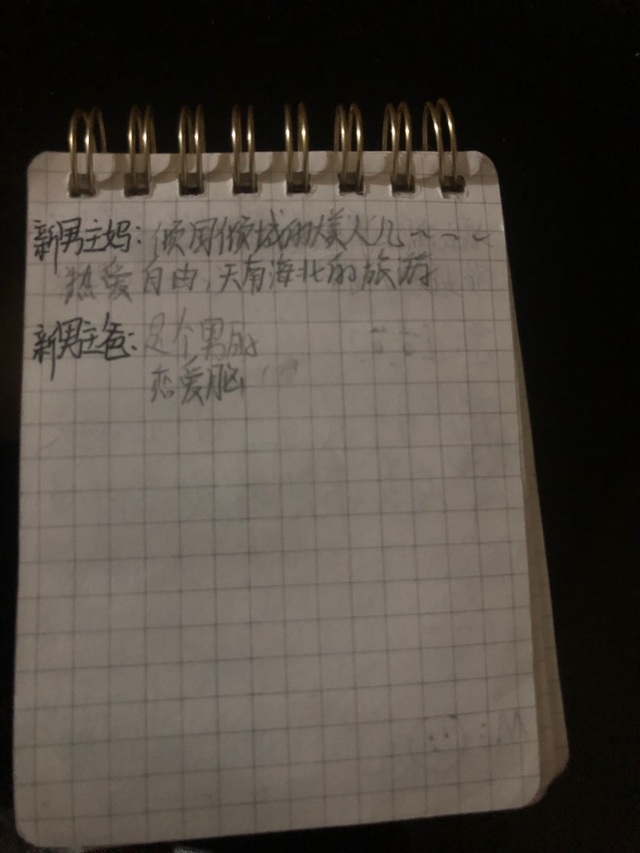 新男主妈：倾国倾城的大美人儿~~~
热爱自由，天南海北的旅游
新男主爸：是个男的
恋爱脑